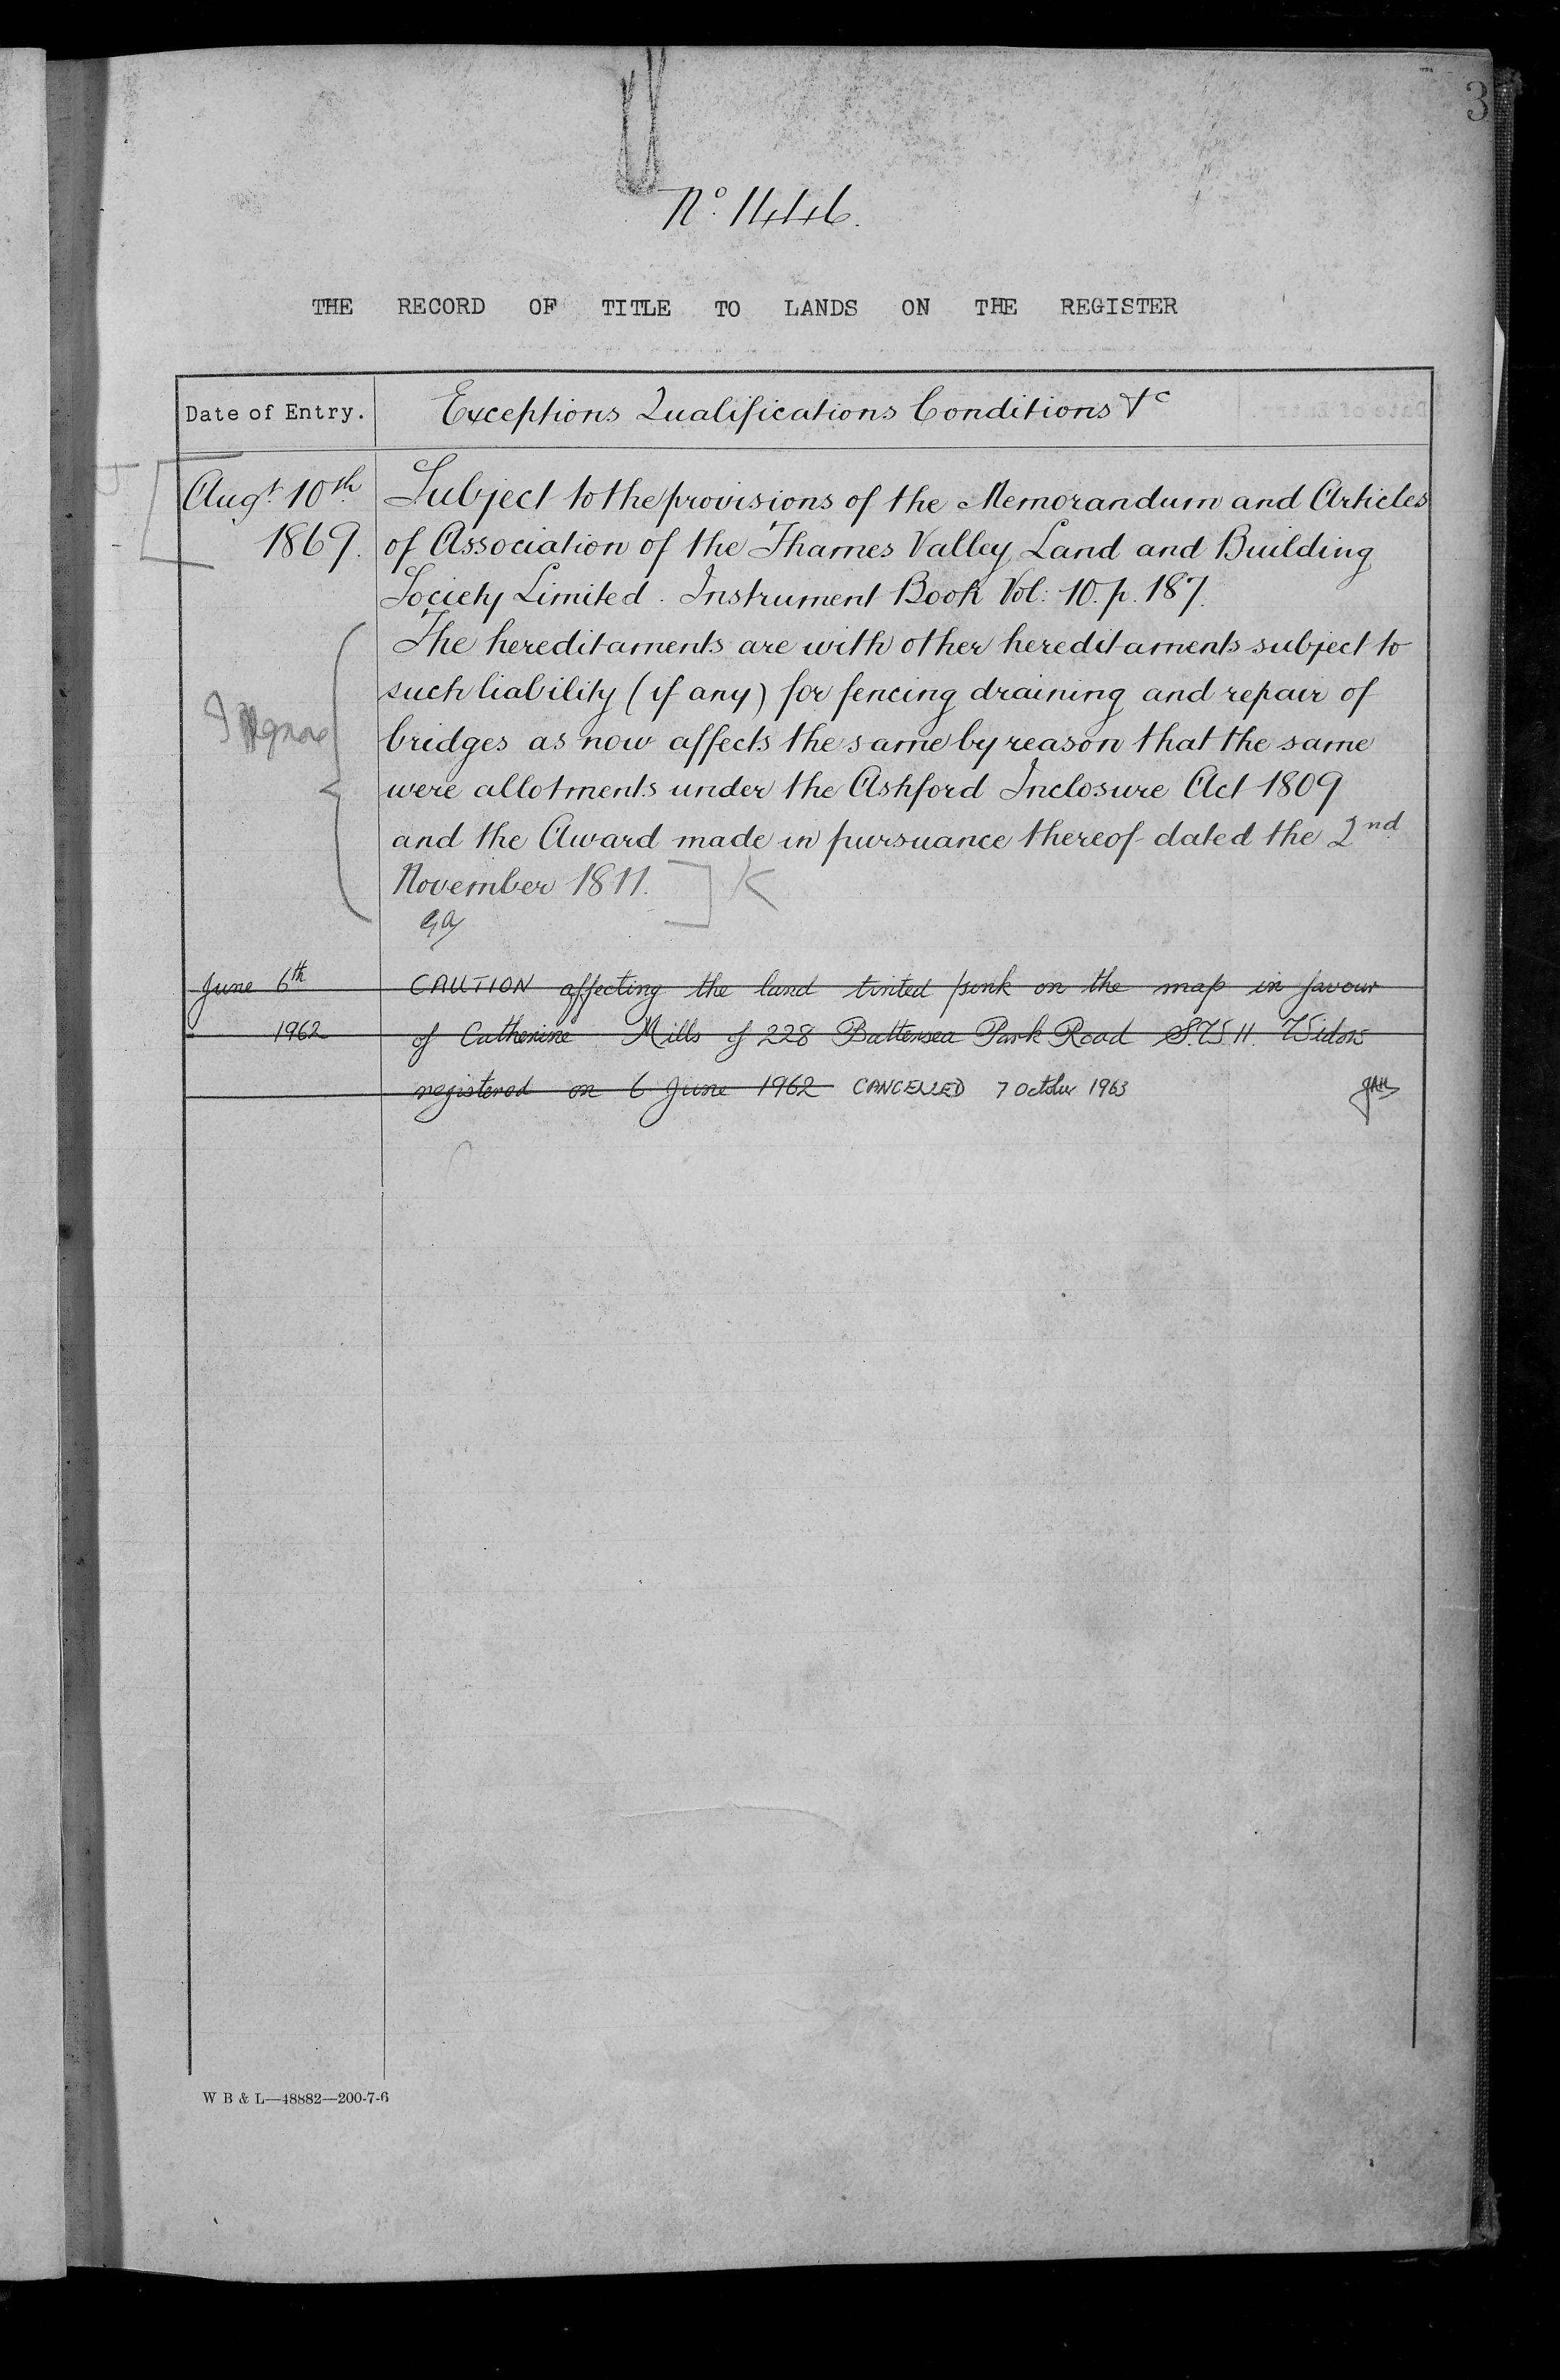 3
No. 1446.
THE RECORD OF TITLE TO LANDS ON THE REGISTER
Date of Entry.
Exceptions Qualifications Conditions &c
Augt. 10th 1869.
Subject to the provisions of the Memorandum and Articles
of Association of the Thames Valley Land and Building
Society Limited. Instrument Book Vol: 10. p. 187.
The hereditaments are with other hereditaments subject to
such liability (if any) for fencing draining and repair of
Ignore
bridges as now affects the same by reason that the same
were allotments under the Ashford Inclosure Act 1809
and the Award made in pursuance thereof dated the 2nd
November 1811. K
June 6th
CAUTION affecting the land tinted pink on the map in favour
1962
of Catherine Mills of 228 Battersea Park Road S.W.11. Widow
registered on 6 June 1962 CANCELLED 7 October 1963
W B & L—48882—200-7-6